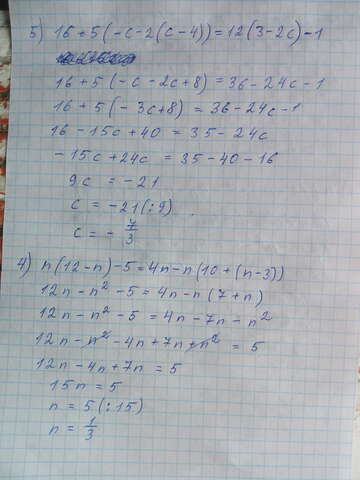 5) 16+5(-c-2(c-4))=12(3-2c)-1
16+5(-c-2c+8)=36-24c-1
16+5(-3c+8)=36-24c-1
16-15c+40=35-24c
-15c+24c=35-40-16
9c=-21
c=-21(:9)
c=-7/3
4) n(12-n)-5=4n-n(10+(n-3))
12n-n²-5=4n-n(7+n)
12n-n²-5=4n-7n-n²
12n-n²-4n+7n+n²=5
12n-4n+7n=5
15n=5
n=5(:15)
n=1/3